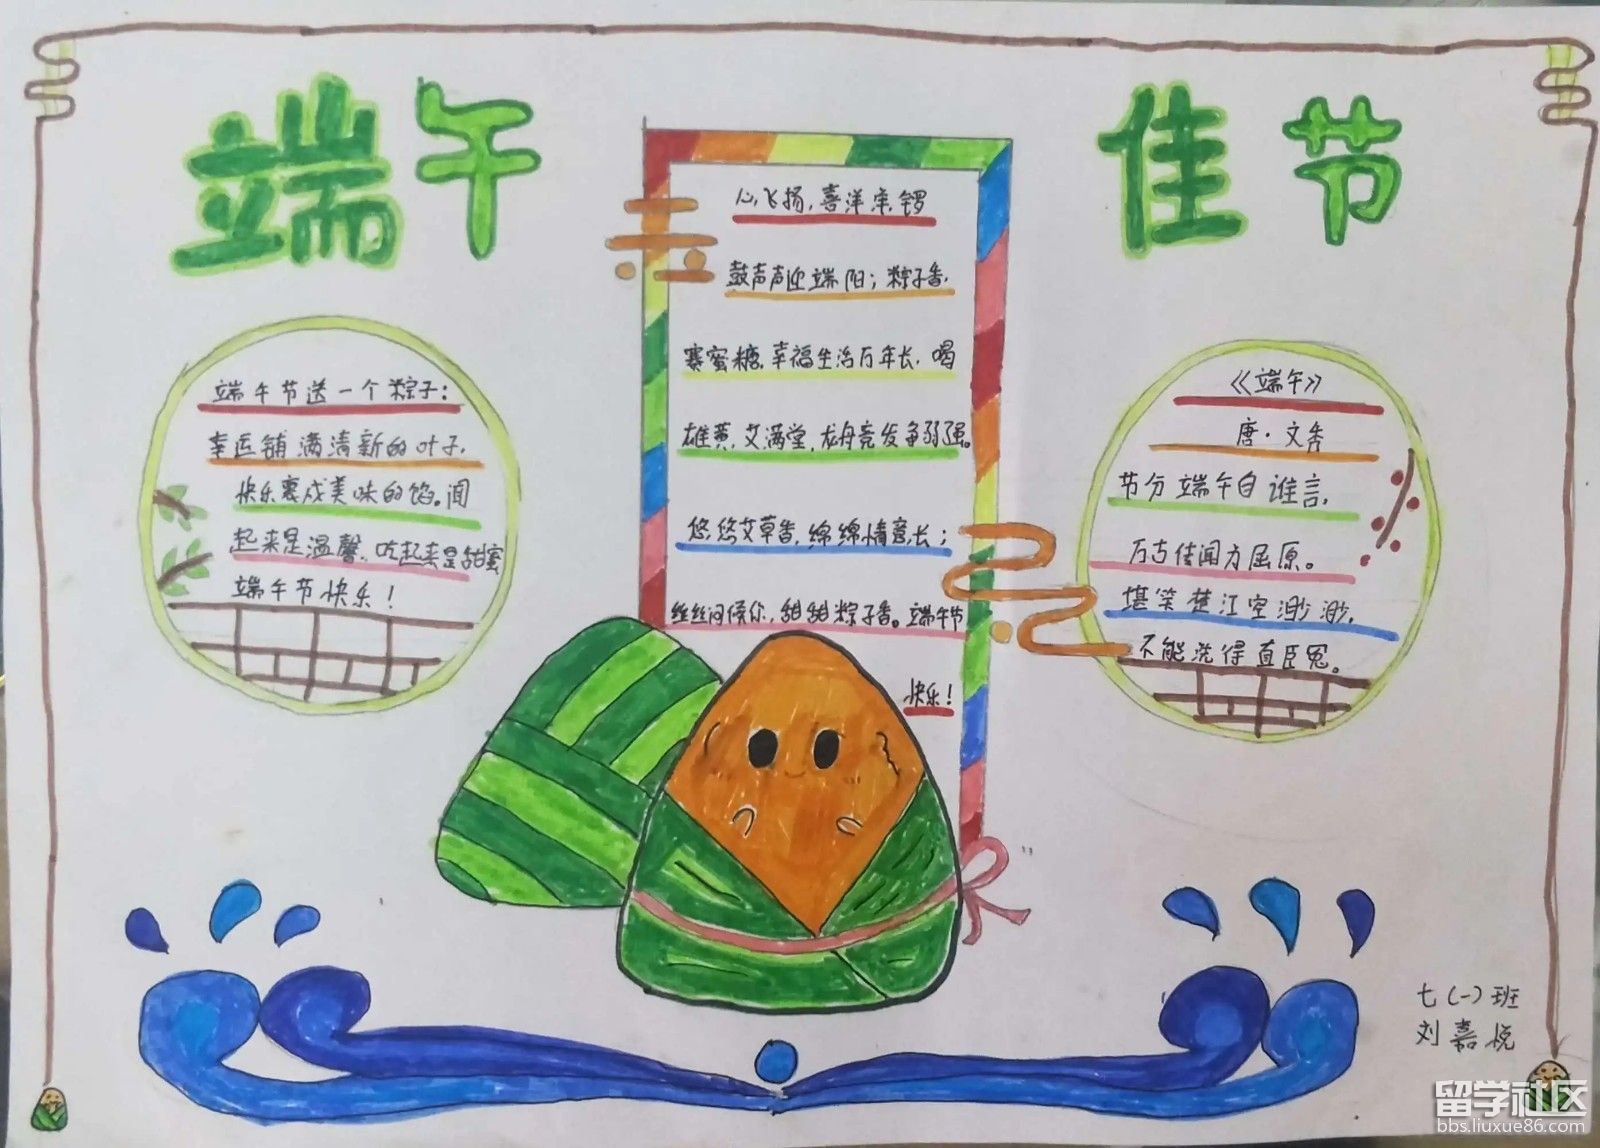 端午
佳节
端午节送一个粽子:
幸运铺满清新的叶子,
快乐裹成美味的馅。闻
起来是温馨,吃起来是甜蜜
端午节快乐!
心飞扬,喜洋洋,锣
鼓声声迎端阳;粽子香,
赛蜜糖,幸福生活万年长,喝
雄黄,艾满堂,龙舟竞发争弱强。
悠悠艾草香,绵绵情意长;
丝丝问候你,甜甜粽子香。端午节
快乐!
《端午》
唐·文秀
节分端午自谁言,
万古传闻为屈原。
堪笑楚江空渺渺,
不能洗得直臣冤。
七(一)班
刘嘉悦
留学社区
bbs.liuxue86.com